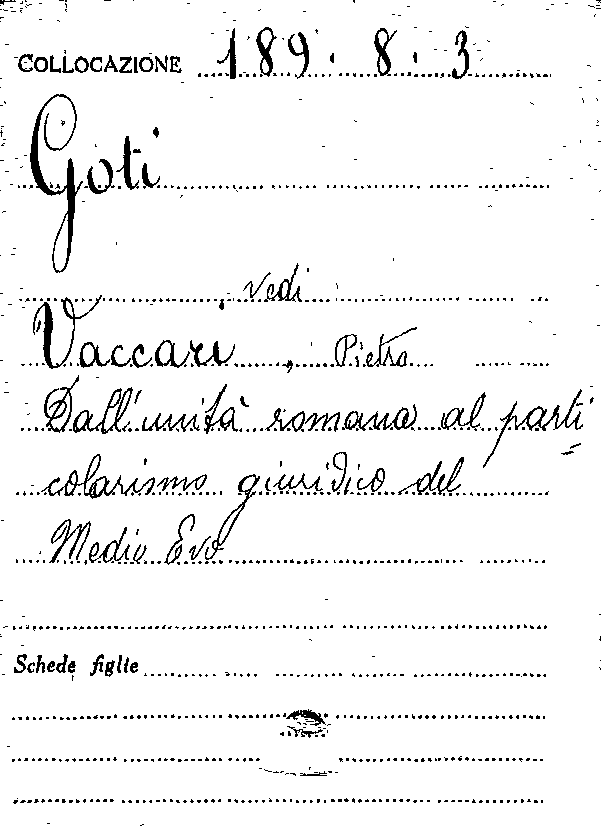 COLLOCAZIONE 189. 8. 3
Goti
vedi
Vaccari, Pietro
Dall'unità romana al parti=
colarismo giuridico del
Medio Evo
Schede figlie